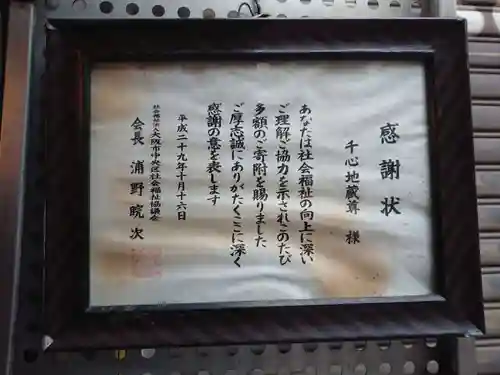 感謝状
千心地蔵尊 様
あなたは社会福祉の向上に深い
ご理解ご協力を示されこのたび
多額のご寄附を賜りました
ご厚志誠にありがたくここに深く
感謝の意を表します
平成二十九年十月十六日
社会福祉法人大阪市中央区社会福祉協議会
会長 浦野 晥次